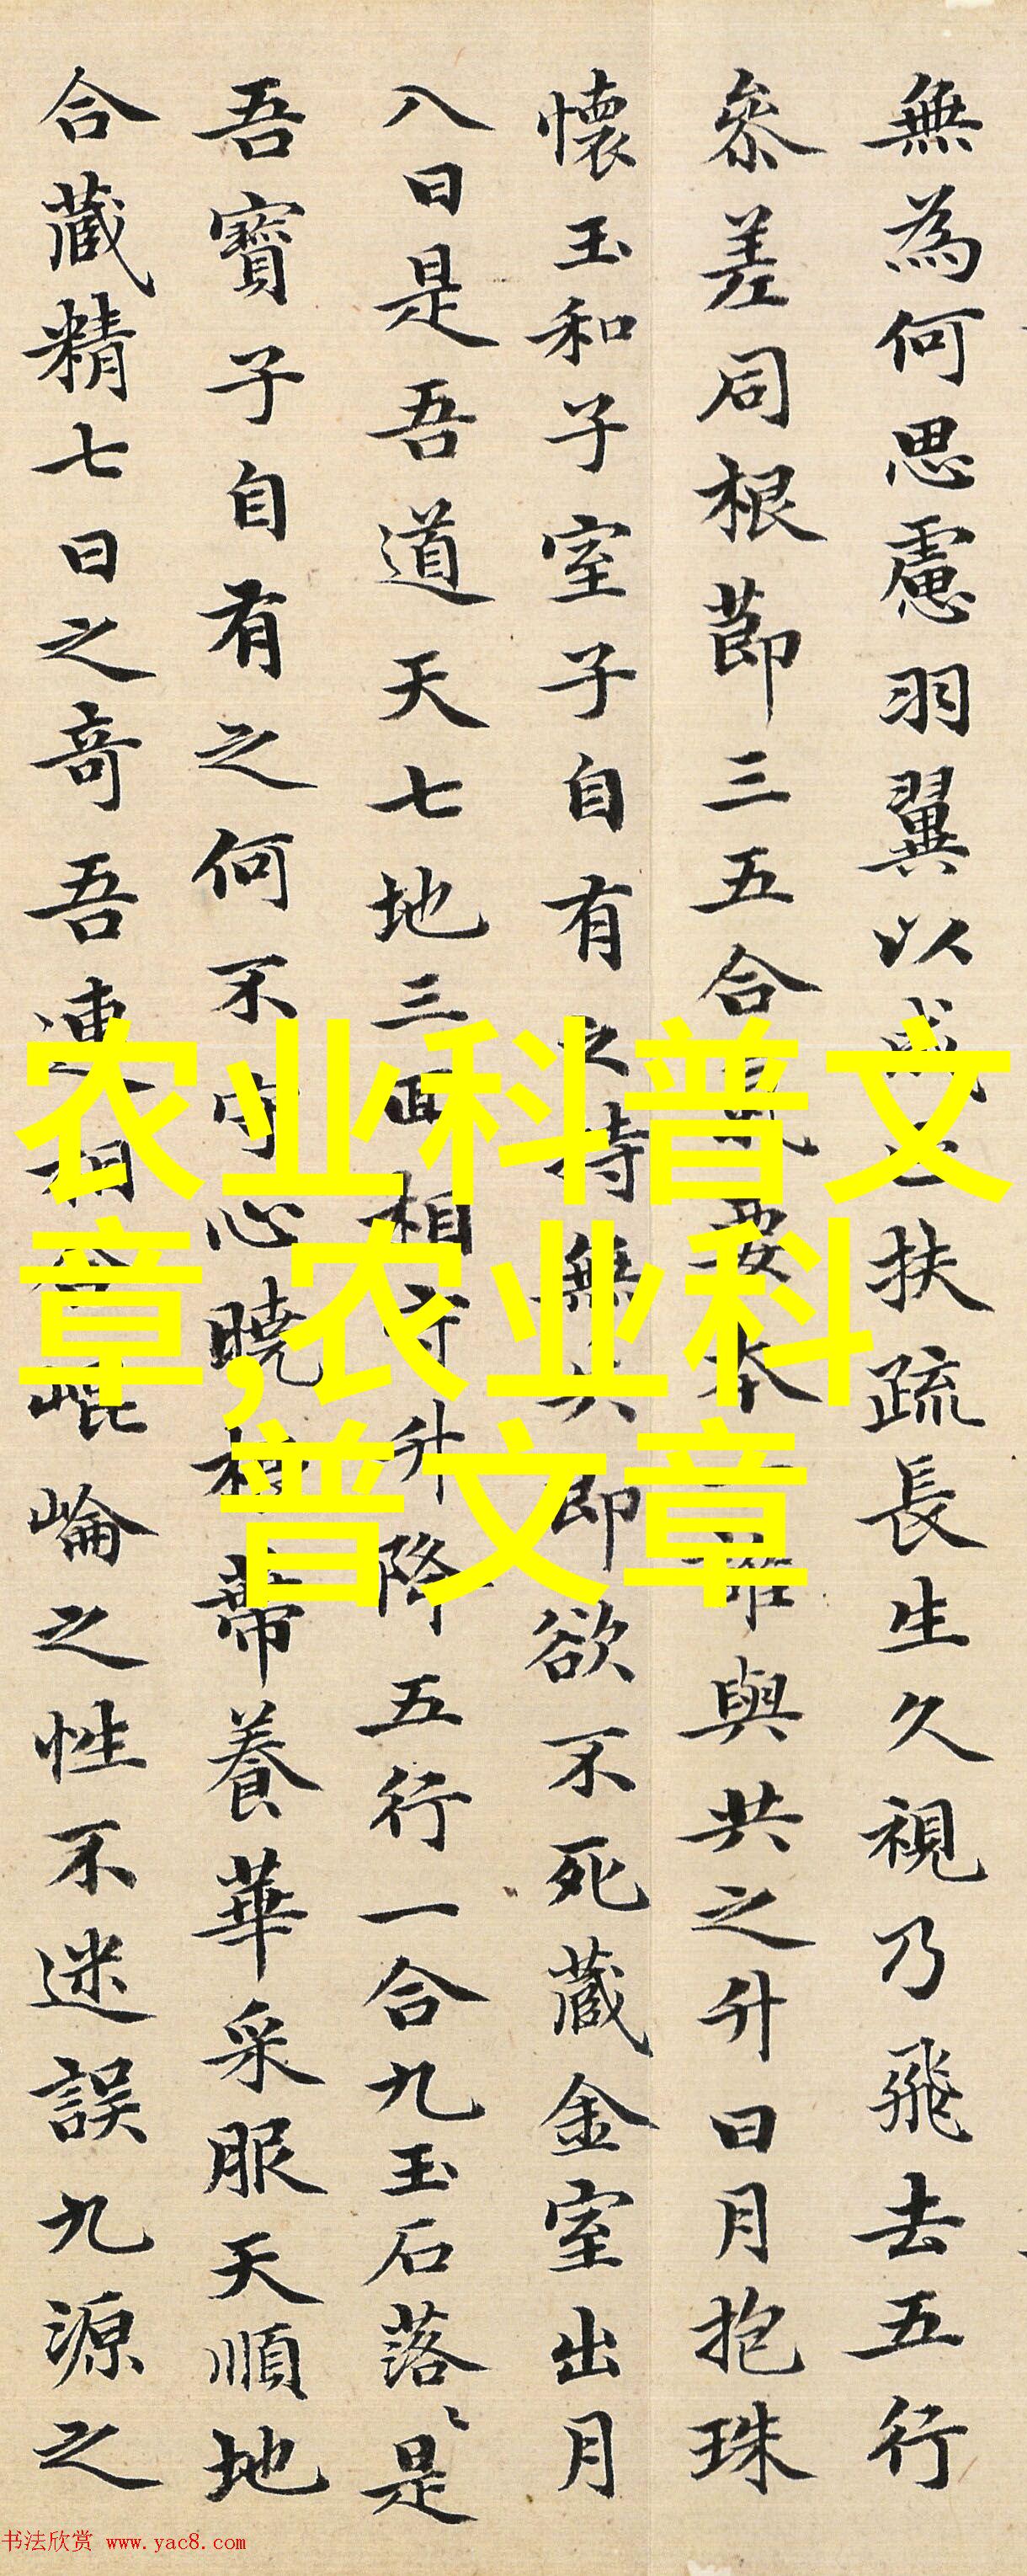 無為何思慮羽翼以成扶疏長生久視乃飛去五行
叅差同根莭三五合氣要本誰與共之升日月抱珠
懷玉和子室子自有之持無失即欲不死藏金室出月
入日是吾道天七地三回相守升降五行一合九玉石落〻是
吾寶子自有之何不守心曉根蒂養華采服天順地
合藏精七日之奇吾連相合崐崘之性不迷誤九源之
农业科普文
章,农业科
普文章
书法欣赏 www.yac8.com